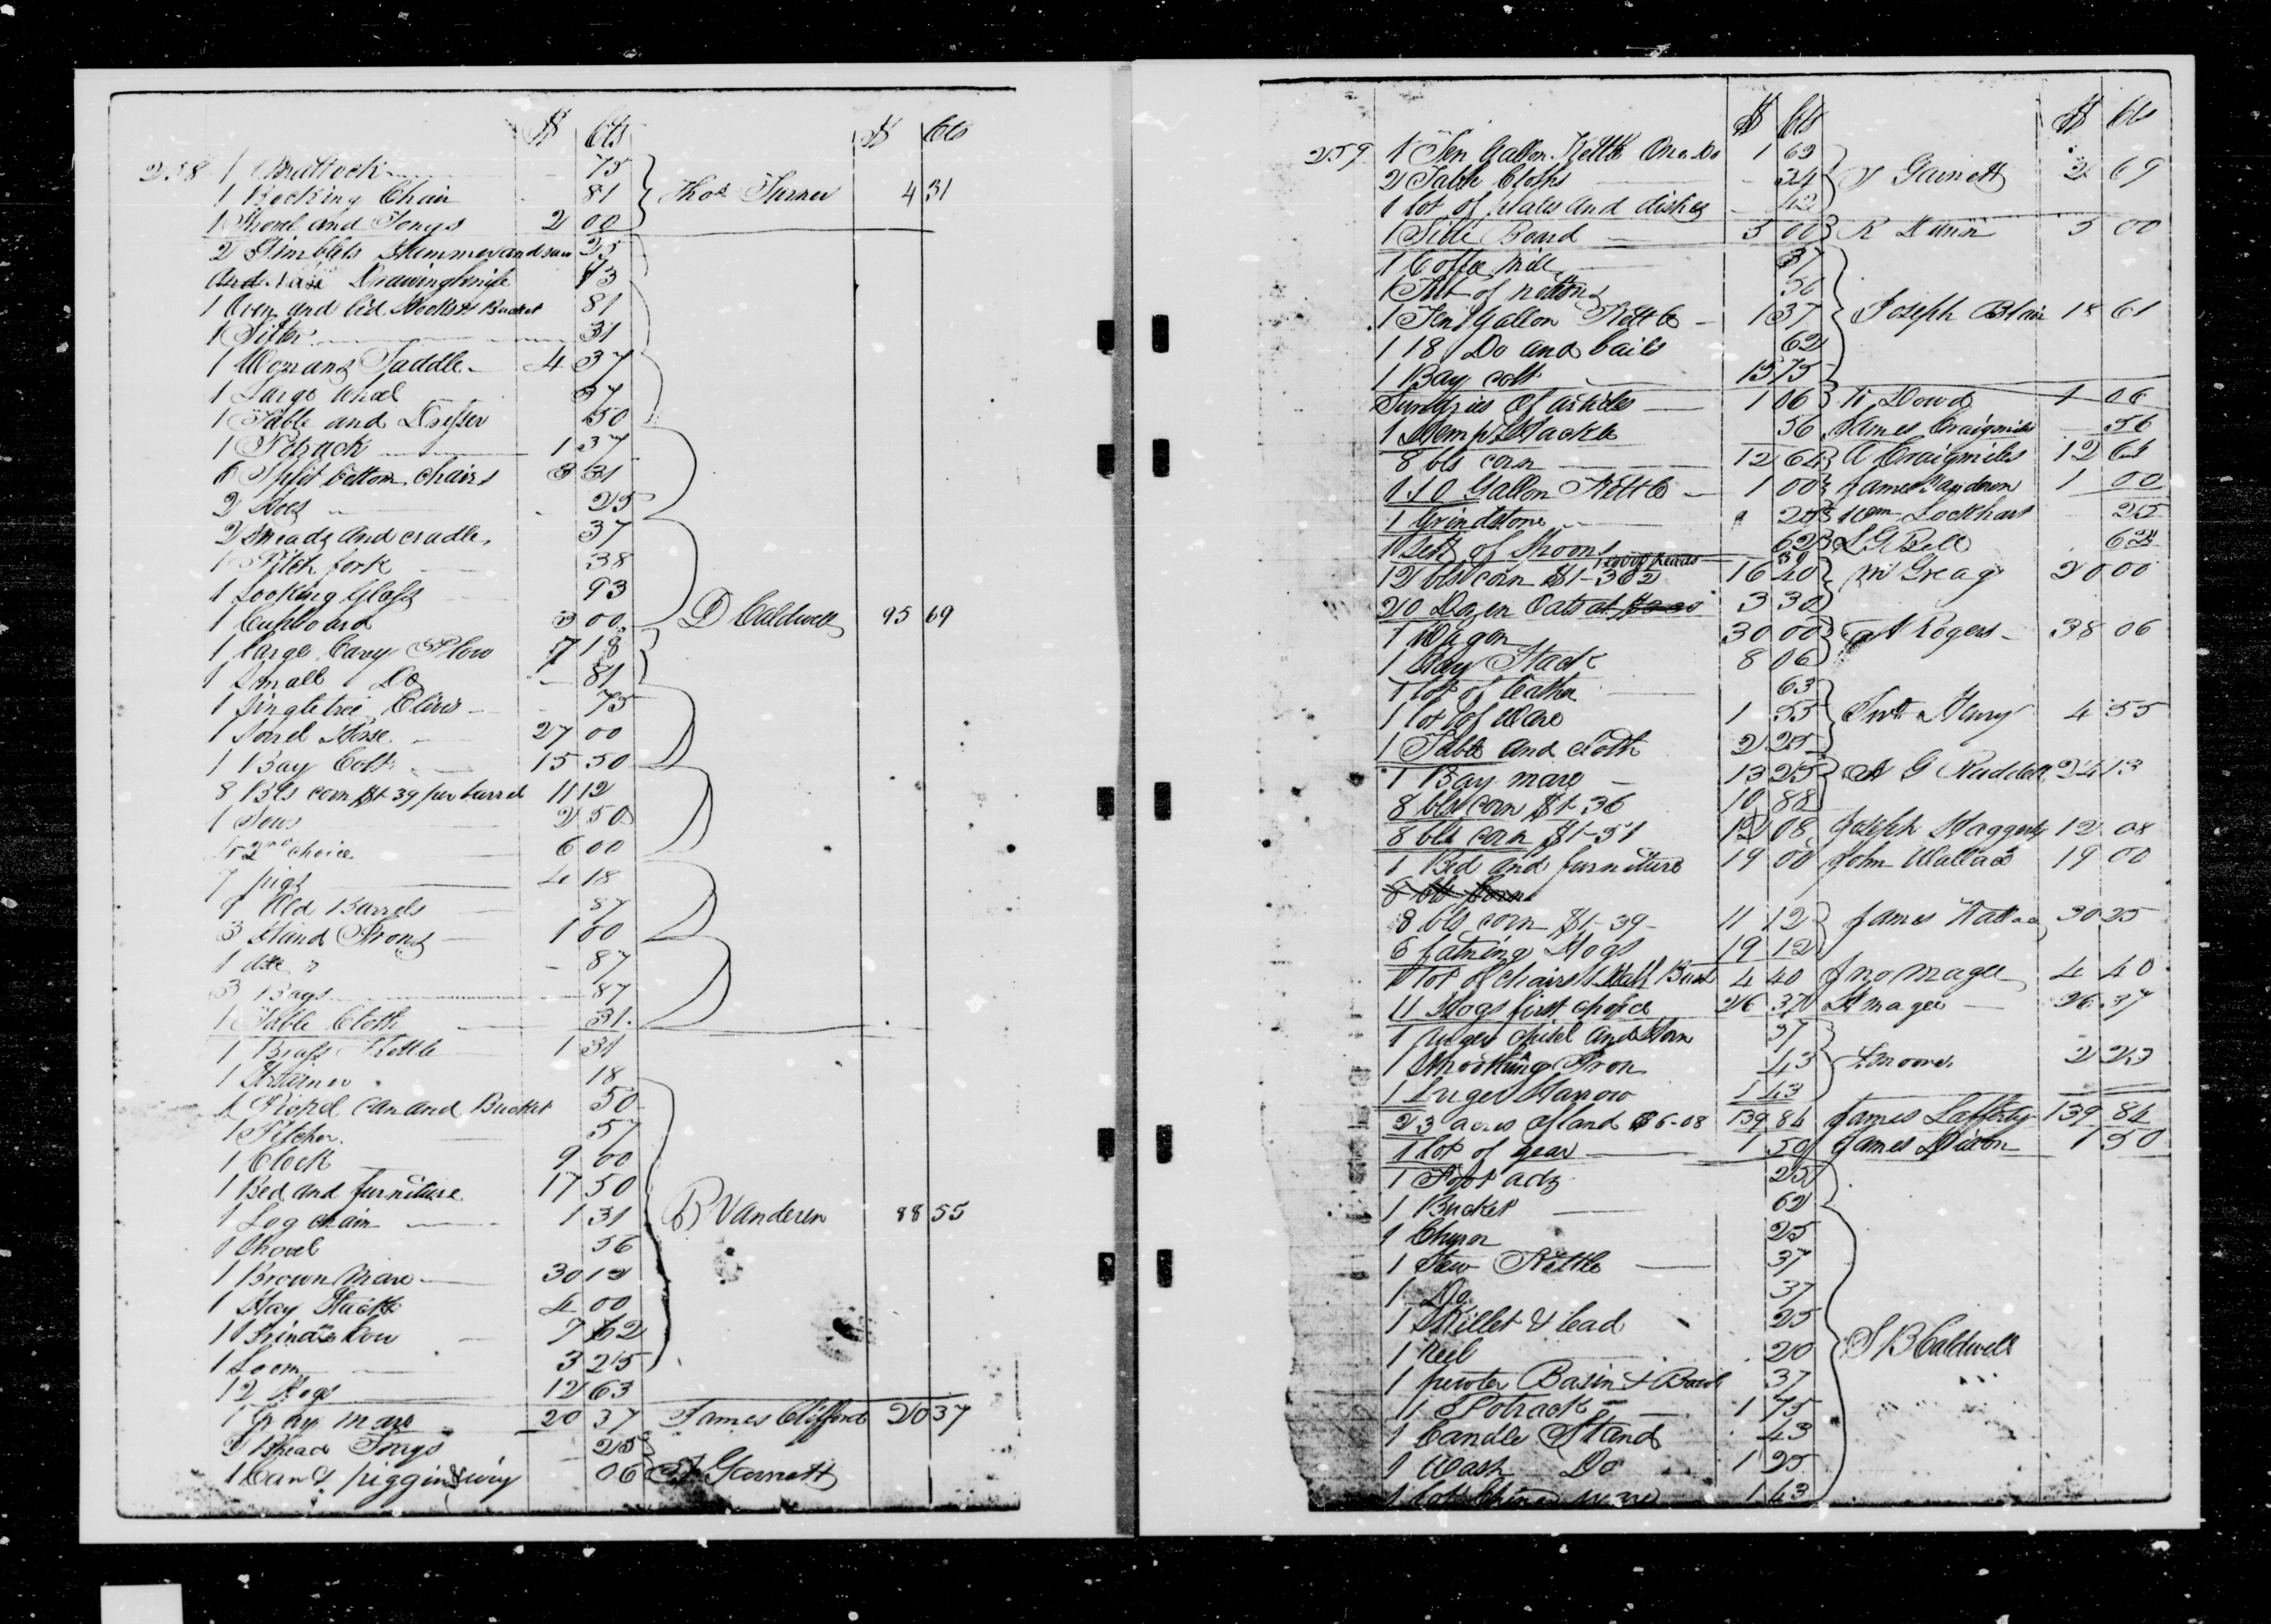 $ Cts $ Cts
258 1 Mattock 75
1 Rocking Chair 81 Thos Turner 4 31
1 Shovel and Tongs 2 00
2 Gimblets Hammer and saw 25
Drawingknife 43
1 Oven and lid Hooks & Bucket 81
1 Sifter 31
1 Womans Saddle 4 37
1 Large wheel 37
1 Table and Dresser 50
1 Potrack 1 37
6 Split bottom chairs 3 31
2 Hoes 25
2 Sneads and cradle 37
1 Pitch fork 38
1 Looking Glass 93
1 Cupboard 3 00 D Caldwell 95 69
1 large Cary Plow 7 18
1 Small Do 81
1 Singletree Clivis 75
1 Sorrel Horse 27 00
1 Bay Colt 15 50
8 Bls corn $1-39 per barrel 11 12
1 Sows 2 50
15 2nd choice 6 00
7 pigs 4 18
9 Old Barrels 87
3 Hand Irons 1 00
1 87
3 Bags 87
1 Table Cloth 31
1 Brass Kettle 1 31
1 Strainer 18
1 can and Bucket 50
1 Pitcher 57
1 Clock 9 00
1 Bed and furniture 17 50
1 Log chain 1 31 B Vanderen 88 55
1 Shovel 56
1 Brown Mare 30 12
1 Hay Stack 4 00
1 Brindle Cow 7 62
1 Loom 3 25
12 Hogs 12 63
1 Gray mare 20 37 James Clifford 20 37
Bread Tongs 25
1 Can & piggin 06 Garnett
$ Cts $ Cts
259 1 Ten Gallon Kettle One Do 1 63
2 Table Cloths 34 Garnett 2 69
1 lot of plates and dishes 42
1 Side Board 5 00 R Dunn 5 00
1 Coffee Mill 37
1 56
1 Ten Gallon Kettle 1 37 Joseph Blair 18 61
1 18 Do and bails 62
1 Bay colt 15 75
Sundries of articles 1 06 Dowd 1 06
1 Hemp Hackle 56 James Craigmiles 56
8 bls corn 12 64 A Craigmiles 12 64
1 10 Gallon Kettle 1 00 James 1 00
1 Grindstone 25 Wm Lockhart 25
1 Sett of Spoons 62 L G Bell 62
12 bls corn $1-36 2 16 40 20 00
20 Dozen Oats 3 30
1 Wagon 30 00 Rogers 38 06
1 Hay Stack 8 06
1 lot of leather 63
1 lot of Ware 1 55 Henry 4 55
1 Table and cloth 2 25
1 Bay mare 13 25 G Ruddell 24 13
8 bls corn $1-36 10 88
8 bls corn $1-51 12 08 Joseph Haggerty 12 08
1 Bed and furniture 19 00 John Wallace 19 00
8 bls corn
8 bls corn $1-39 11 12 James Wallace 30 25
6 fatning Hogs 19 12
1 lot of chairs 4 40 Jno magee 4 40
11 Hogs first choice 26 37 magee 26 37
1 Auger chisel and Horn 37
1 Smoothing Iron 43 moore 2 23
1 Luger Harrow 1 43
23 acres of land $6-08 139 84 James Lafferty 139 84
1 lot of gear 1 50 James Dixon 1 50
1 Foot adz 25
1 Bucket 62
1 Churn 25
1 Stew Kettle 37
1 Do 37
1 Skillet & lead 25
1 Reel 20 S B Caldwell
1 pewter Basin & Bowl 37
1 Potrack 1 75
1 Candle Stand 43
1 Wash Do 1 25
1 lot China ware 1 43